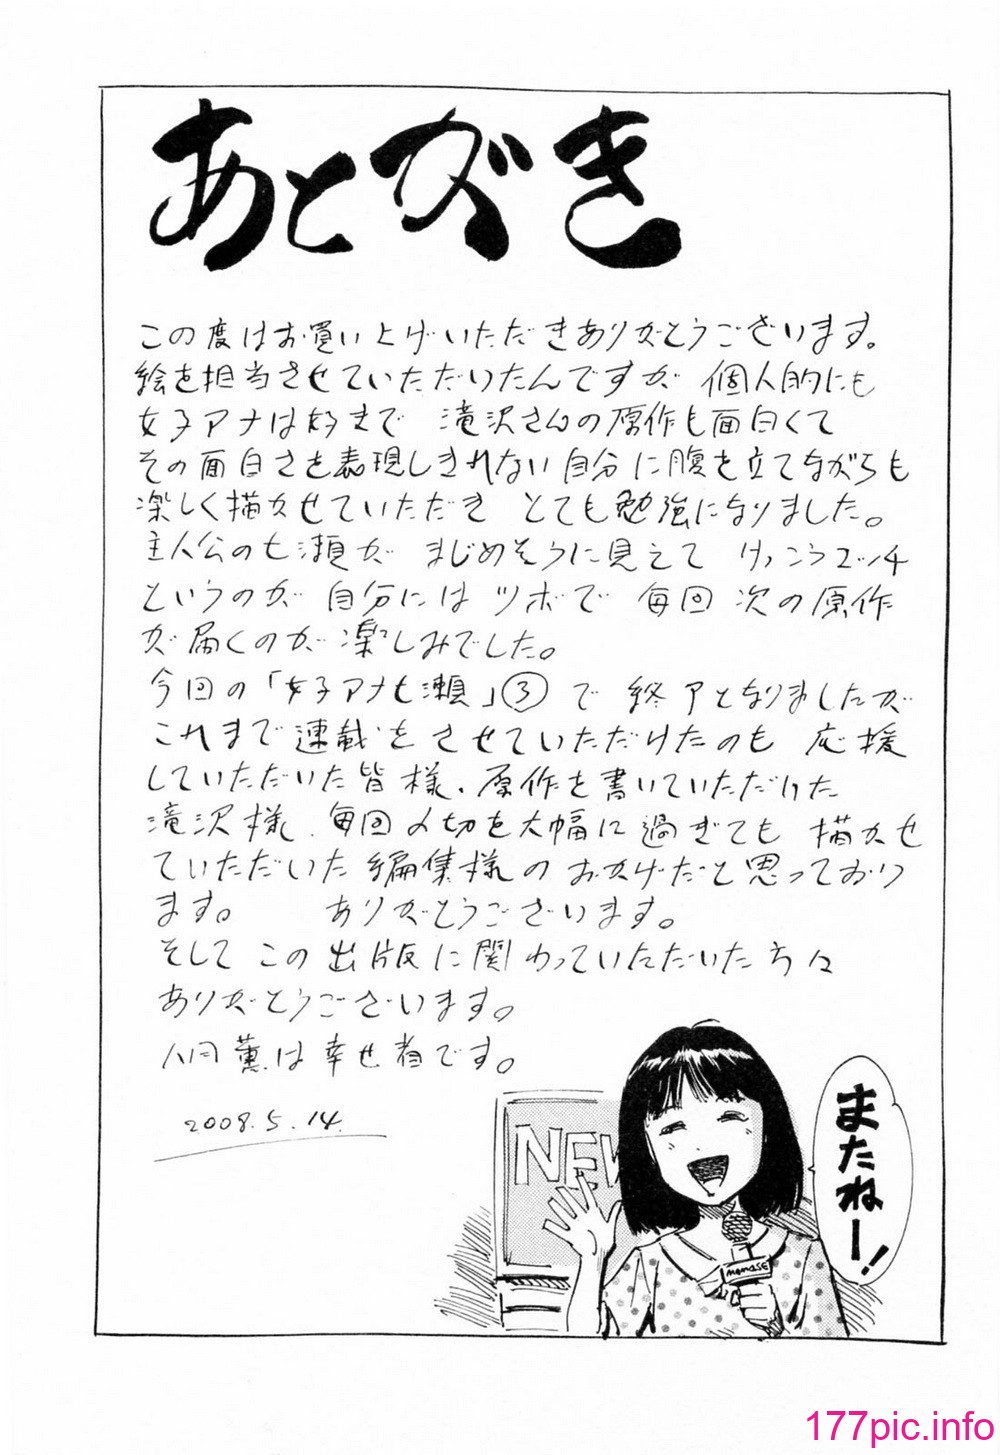 あとがき
この度はお買い上げいただきありがとうございます。
絵を担当させていただいたんですが 個人的にも
女子アナは好きで 滝沢さんの原作も面白くて
その面白さを表現しきれない自分に腹を立てながらも
楽しく描かせていただき とても勉強になりました。
主人公の七瀬が まじめそうに見えて けっこうエッチ
というのが 自分にはツボで 毎回 次の原作
が届くのが楽しみでした。
今回の「女子アナ七瀬」③で 終了となりましたが
これまで連載をさせていただけたのも 応援
していただいた皆様、原作を書いていただけた
滝沢様、毎回〆切を大幅に過ぎても 描かせ
ていただいた編集様のおかげだと思っており
ます。 ありがとうございます。
そして この出版に関わっていただいた方々
ありがとうございます。
八月薫は幸せ者です。
2008.5.14.
NEW
またねー!
NANASE
177pic.info